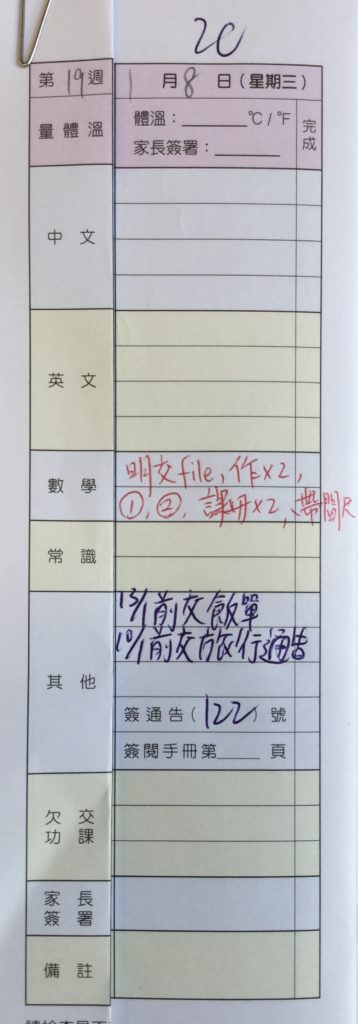 2C
第19週 1月8日(星期三)
量體溫 體溫：______℃/℉ 完成
家長簽署：______
中文
英文
數學 明交file, 作x2,
①, ②, 課册x2、帶間尺
常識
13/1前交飯單
10/1前交旅行通告
其他
簽通告(122)號
簽閱手冊第____頁
欠交功課
家長簽署
備註